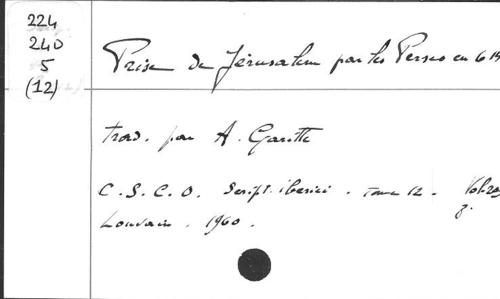 224
240
5
(12)
Prise de Jérusalem par les Perses en 61
trad. par A. Garitte
C.S.C.O. Script. iberici. tome 12. Vol. 203
Louvain. 1960.